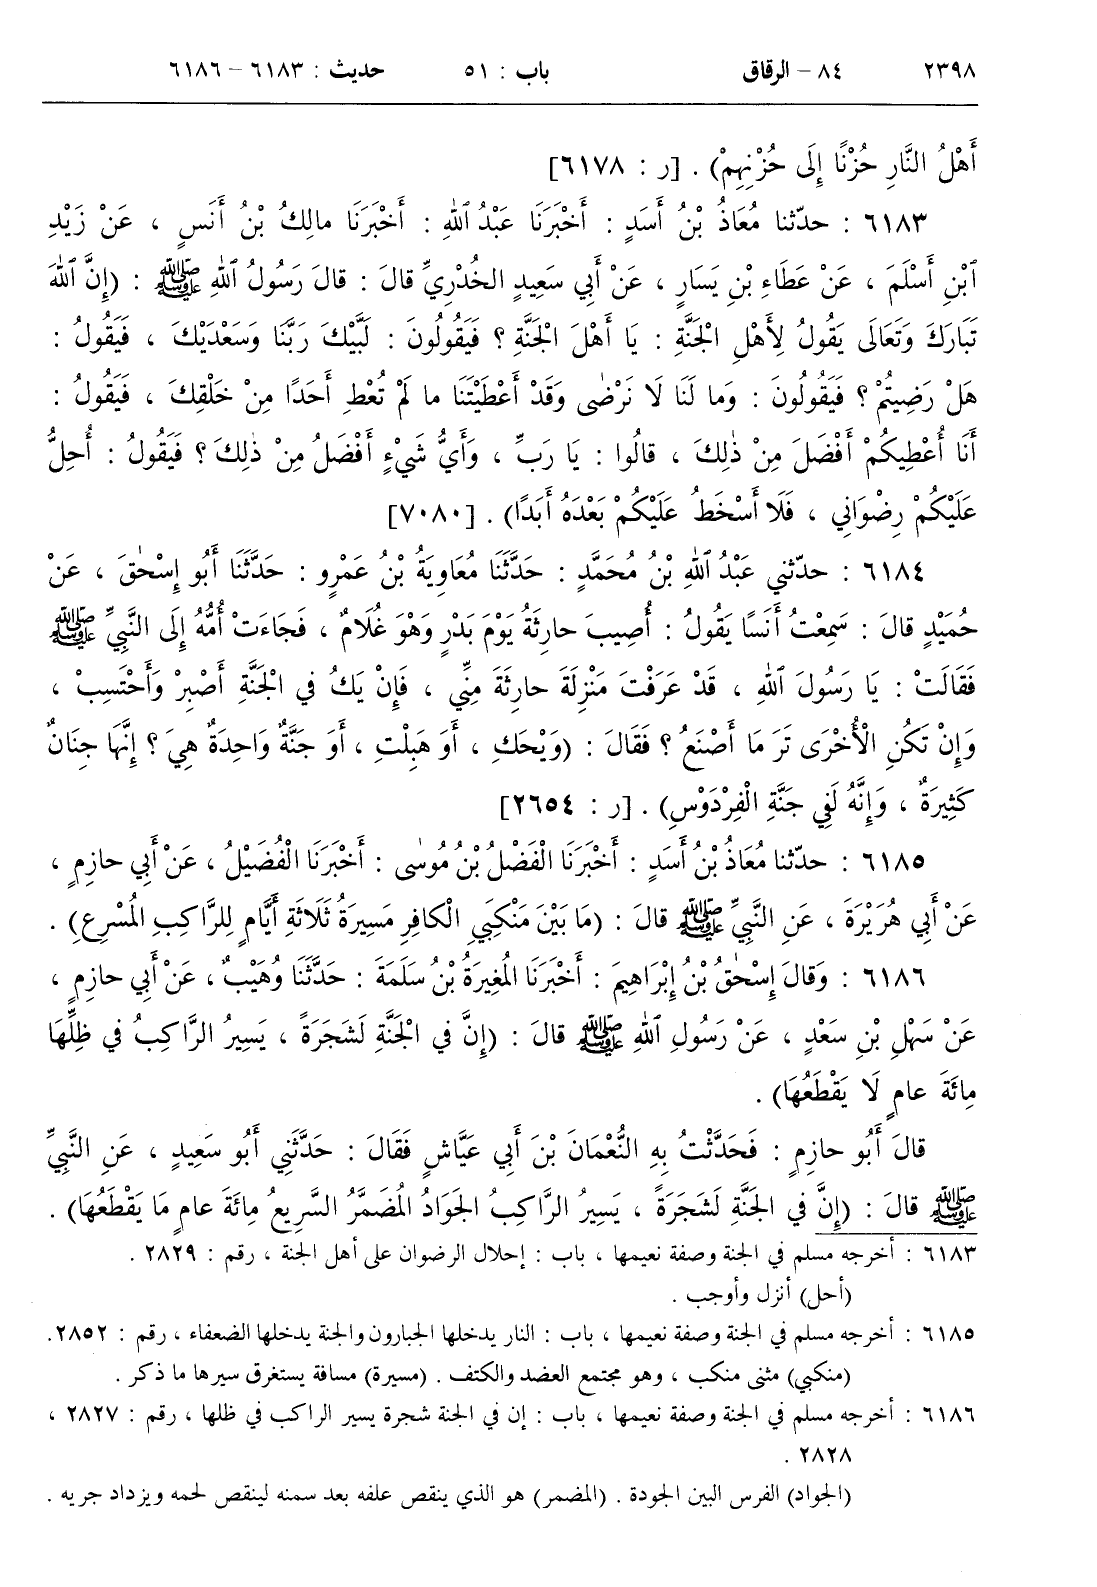 ٢٣٩٨ ٨٤ – الرقاق باب : ٥١ حديث : ٦١٨٣ – ٦١٨٦
أَهْلُ النَّارِ حُزْنًا إِلَى حُزْنِهِمْ) . [ر : ٦١٧٨]
٦١٨٣ : حدّثنا مُعَاذُ بْنُ أَسَدٍ : أَخْبَرَنَا عَبْدُ ٱللهِ : أَخْبَرَنَا مالِكُ بْنُ أَنَسٍ ، عَنْ زَيْدِ
ٱبْنِ أَسْلَمَ ، عَنْ عَطَاءِ بْنِ يَسَارٍ ، عَنْ أَبِي سَعِيدٍ الخُدْرِيِّ قالَ : قالَ رَسُولُ ٱللهِ ﷺ : (إِنَّ ٱللهَ
تَبَارَكَ وَتَعَالَى يَقُولُ لِأَهْلِ الْجَنَّةِ : يَا أَهْلَ الْجَنَّةِ ؟ فَيَقُولُونَ : لَبَّيْكَ رَبَّنَا وَسَعْدَيْكَ ، فَيَقُولُ :
هَلْ رَضِيتُمْ ؟ فَيَقُولُونَ : وَما لَنَا لَا نَرْضٰى وَقَدْ أَعْطَيْتَنَا ما لَمْ تُعْطِ أَحَدًا مِنْ خَلْقِكَ ، فَيَقُولُ :
أَنَا أُعْطِيكُمْ أَفْضَلَ مِنْ ذٰلِكَ ، قالُوا : يَا رَبِّ ، وَأَيُّ شَيْءٍ أَفْضَلُ مِنْ ذٰلِكَ ؟ فَيَقُولُ : أُحِلُّ
عَلَيْكُمْ رِضْوَانِي ، فَلَا أَسْخَطُ عَلَيْكُمْ بَعْدَهُ أَبَدًا) . [٧٠٨٠]
٦١٨٤ : حدّثني عَبْدُ ٱللهِ بْنُ مُحَمَّدٍ : حَدَّثَنَا مُعَاوِيَةُ بْنُ عَمْرٍو : حَدَّثَنَا أَبُو إِسْحٰقَ ، عَنْ
حُمَيْدٍ قالَ : سَمِعْتُ أَنَسًا يَقُولُ : أُصِيبَ حارِثَةُ يَوْمَ بَدْرٍ وَهْوَ غُلَامٌ ، فَجَاءَتْ أُمُّهُ إِلَى النَّبِيِّ ﷺ
فَقَالَتْ : يَا رَسُولَ ٱللهِ ، قَدْ عَرَفْتَ مَنْزِلَةَ حارِثَةَ مِنِّي ، فَإِنْ يَكُ في الْجَنَّةِ أَصْبِرْ وَأَحْتَسِبْ ،
وَإِنْ تَكُنِ الْأُخْرَى تَرَ مَا أَصْنَعُ ؟ فَقَالَ : (وَيْحَكِ ، أَوَ هَبِلْتِ ، أَوَ جَنَّةٌ وَاحِدَةٌ هِيَ ؟ إِنَّهَا جِنَانٌ
كَثِيرَةٌ ، وَإِنَّهُ لَفِي جَنَّةِ الْفِرْدَوْسِ) . [ر : ٢٦٥٤]
٦١٨٥ : حدّثنا مُعَاذُ بْنُ أَسَدٍ : أَخْبَرَنَا الْفَضْلُ بْنُ مُوسٰى : أَخْبَرَنَا الْفُضَيْلُ ، عَنْ أَبِي حازِمٍ ،
عَنْ أَبِي هُرَيْرَةَ ، عَنِ النَّبِيِّ ﷺ قالَ : (مَا بَيْنَ مَنْكِبَيِ الْكافِرِ مَسِيرَةُ ثَلَاثَةِ أَيَّامٍ لِلرَّاكِبِ المُسْرِعِ) .
٦١٨٦ : وَقالَ إِسْحٰقُ بْنُ إِبْرَاهِيمَ : أَخْبَرَنَا المُغِيرَةُ بْنُ سَلَمَةَ : حَدَّثَنَا وُهَيْبٌ ، عَنْ أَبِي حازِمٍ ،
عَنْ سَهْلِ بْنِ سَعْدٍ ، عَنْ رَسُولِ ٱللهِ ﷺ قالَ : (إِنَّ في الْجَنَّةِ لَشَجَرَةً ، يَسِيرُ الرَّاكِبُ في ظِلِّهَا
مِائَةَ عامٍ لَا يَقْطَعُهَا) .
قالَ أَبُو حازِمٍ : فَحَدَّثْتُ بِهِ النُّعْمَانَ بْنَ أَبِي عَيَّاشٍ فَقَالَ : حَدَّثَنِي أَبُو سَعِيدٍ ، عَنِ النَّبِيِّ
ﷺ قالَ : (إِنَّ في الجَنَّةِ لَشَجَرَةً ، يَسِيرُ الرَّاكِبُ الجَوَادُ المُضَمَّرُ السَّرِيعُ مِائَةَ عامٍ مَا يَقْطَعُهَا) .
٦١٨٣ : أخرجه مسلم في الجنة وصفة نعيمها ، باب : إحلال الرضوان على أهل الجنة ، رقم : ٢٨٢٩ .
(أحل) أنزل وأوجب .
٦١٨٥ : أخرجه مسلم في الجنة وصفة نعيمها ، باب : النار يدخلها الجبارون والجنة يدخلها الضعفاء ، رقم : ٢٨٥٢.
(منكبي) مثنى منكب ، وهو مجتمع العضد والكتف . (مسيرة) مسافة يستغرق سيرها ما ذكر .
٦١٨٦ : أخرجه مسلم في الجنة وصفة نعيمها ، باب : إن في الجنة شجرة يسير الراكب في ظلها ، رقم : ٢٨٢٧ ،
٢٨٢٨ .
(الجواد) الفرس البين الجودة . (المضمر) هو الذي ينقص علفه بعد سمنه لينقص لحمه ويزداد جريه .